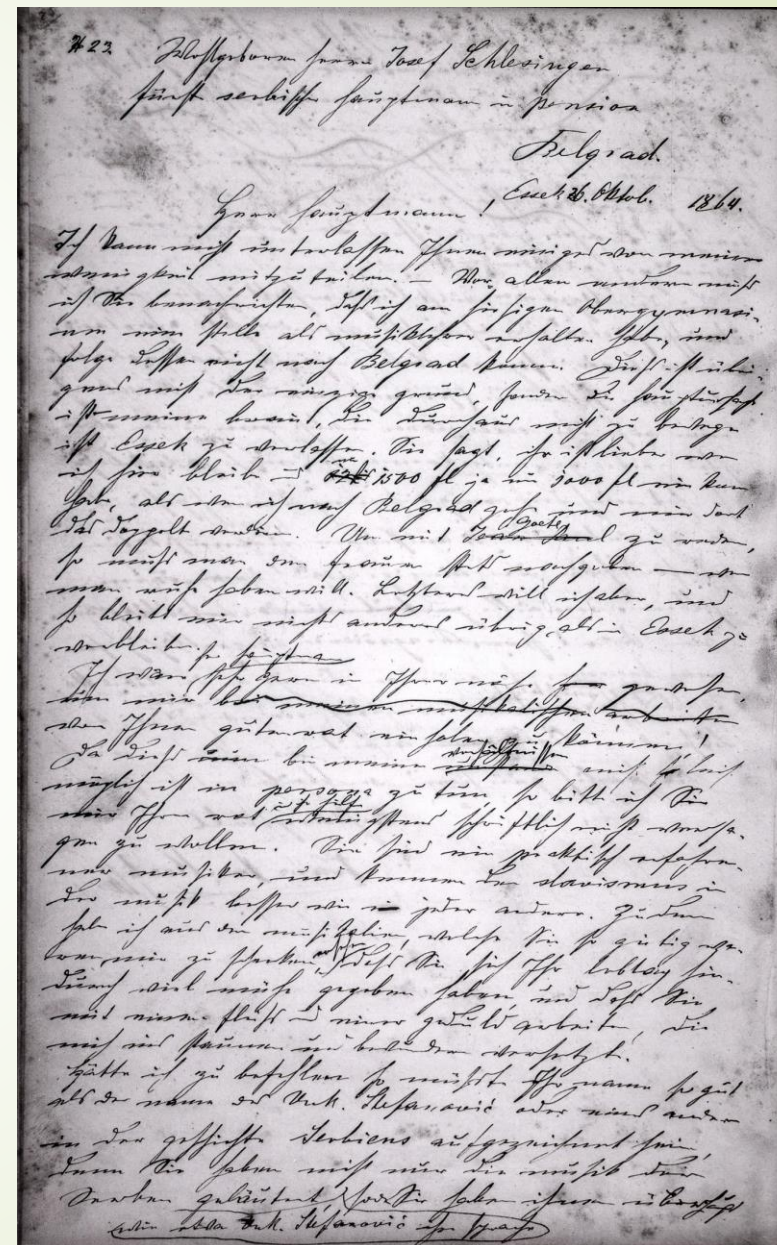 № 23.
Wohlgeboren herrn Josef Schlesinger
fürst. serbische hauptmann in pension
Belgrad.
Essek 26. Oktob. 1864.
Herr hauptmann!
Ich kann nicht unterlassen Ihnen einiges von meiner
wenigkeit mitzuteilen. – Vor allen andern muß
ich Sie benachrichten, daß ich am hiesigen Obergymnasi-
um eine stelle als musiklehrer erhalten habe, und
folge dessen nicht nach Belgrad kommen. Dieß ist übri-
gens nicht der einzige grund, sondern die hauptursache
ist meine braut, die durchaus nicht zu bewegen
ist Essek zu verlassen. Sie sagt, ihr ist lieber wen
ich hier bleibe u 1500 fl ja nur 1000 fl ein kom
habe, als wen ich nach Belgrad gehe und mir dort
das doppelt verdien. Um mit Goethe zu reden,
so muß man den frauen stets nachgeben — wen
man ruhe haben will. Letzteres will ich aber, und
so bleibt mir nichts anderes übrig, als in Essek zu
verbleiben. hauptman
Ich wäre sehr gern in Ihrer nähe gewesen,
um mir bei meinen musikalischen arbeiten
von Ihnen guten rat einholen zu können!
Da dieß bei meinen verhältnissen nicht so leicht
möglich ist in persona zu tun, so bitt ich Sie
mir Ihren rat u hilfe wenigstens schriftlich nicht versa-
gen zu wollen. Sie sind ein praktisch erfahre-
ner musiker, und kennen den slavismus in
der musik besser wie jeder andere. Zudem
hab ich aus den musikalien, welche Sie so gütig wa-
ren mir zu schenken ersehen, daß Sie sich Ihr lebtag hin-
durch viel mühe gegeben haben, und daß Sie
mit einem fleiß u einer geduld arbeiten, die
mich ins staunen und bewundern versetzt.
Hätte ich zu befehlen so müßte Ihr name so gut
als der name des Vuk. Stefanović oder eines andern
in der geschichte Serbiens aufgezeichnet sein,
denn Sie haben nicht nur die musik den
Serben geläutert, Sie haben ihnen überhaupt
(wie etwa Vuk. Stefanović die sprache)